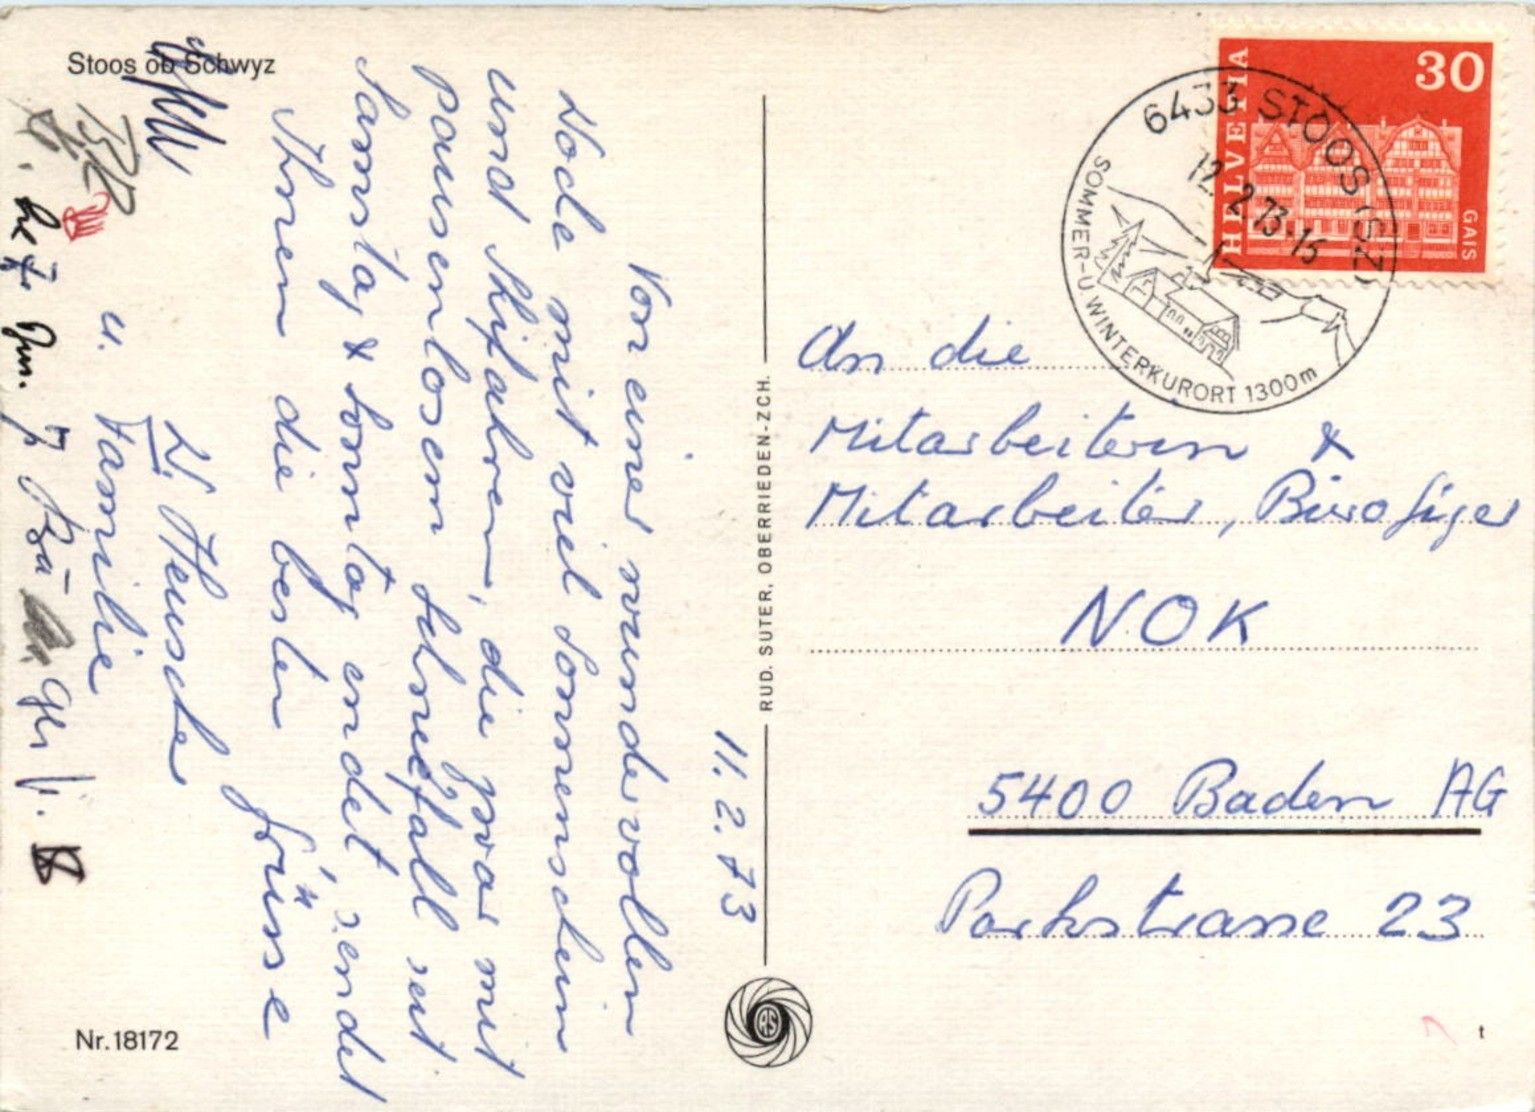 Stoos ob Schwyz
11.2.73
Von einer wundervollen
Woche mit viel Sonnenschein
und Skifahren, die zwar mit
pausenlosem Schneefall seit
Samstag & Sonntag endet, sendet
Ihnen die besten Grüsse
u. Familie
Nr. 18172
RUD. SUTER, OBERRIEDEN-ZCH.
RS
HELVETIA
30
GAIS
6433 STOOS (SZ)
12.2.73-15
SOMMER-U. WINTERKURORT 1300m
An die
Mitarbeitern &
Mitarbeiter, Büro
NOK
5400 Baden AG
Parkstrasse 23
t